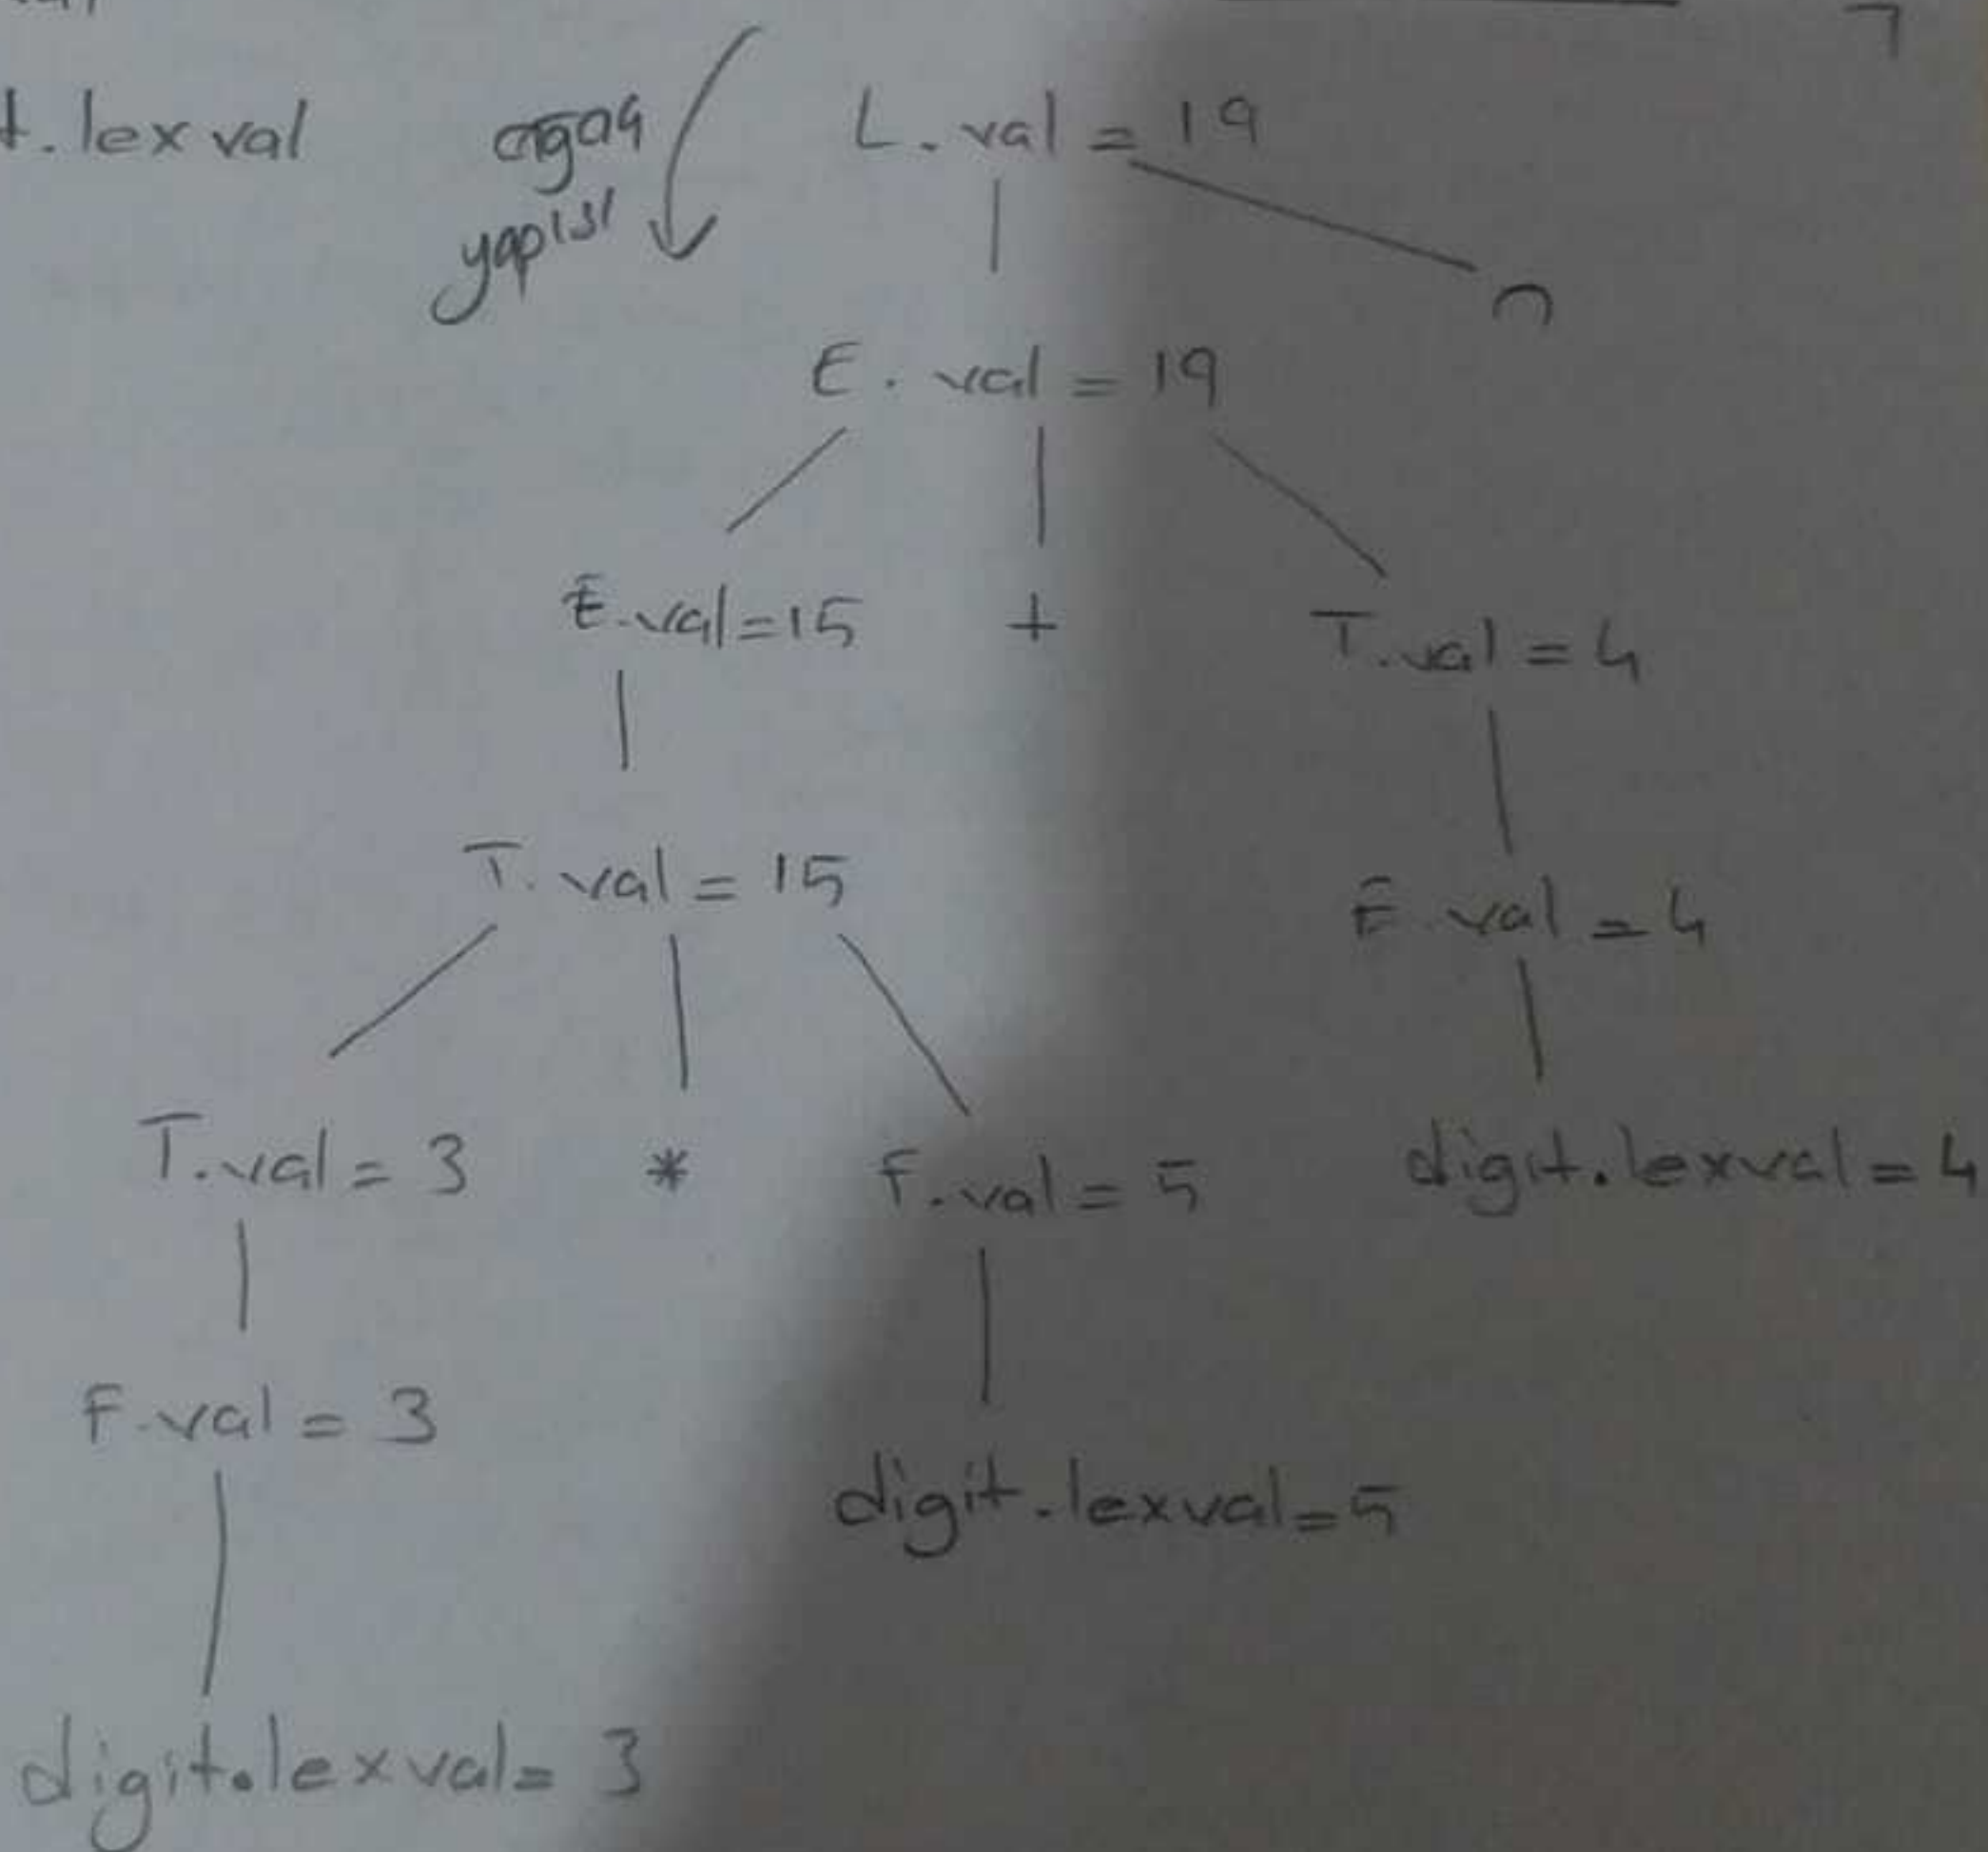 t.lexval
ağaç
yapısı
L.val = 19
n
E.val = 19
E.val=15 + T.val = 4
T.val = 15
F.val = 4
T.val = 3 * F.val = 5
digit.lexval = 4
F.val = 3
digit.lexval=5
digit.lexval= 3